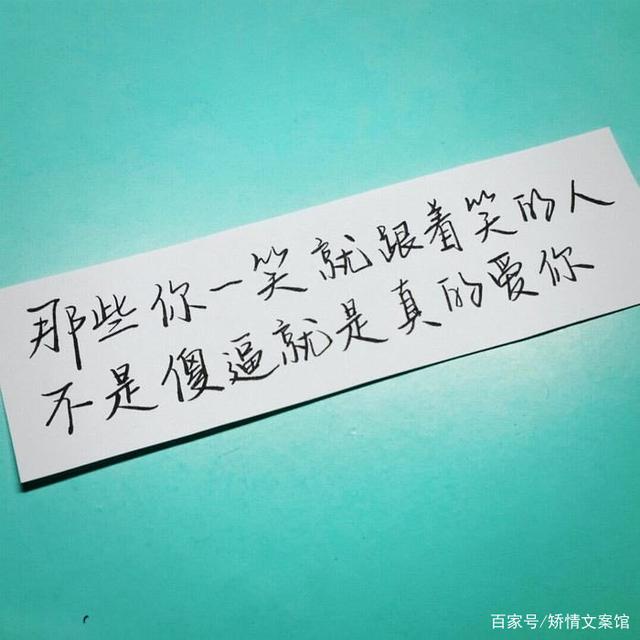 那些你一笑就跟着笑的人
不是傻逼就是真的爱你
百家号/矫情文案馆